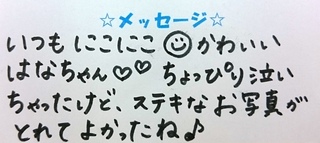 ☆メッセージ☆
いつも にこにこ ☺ かわいい
はなちゃん♡♡ ちょっぴり泣い
ちゃったけど、ステキな お写真が
とれて よかったね♪